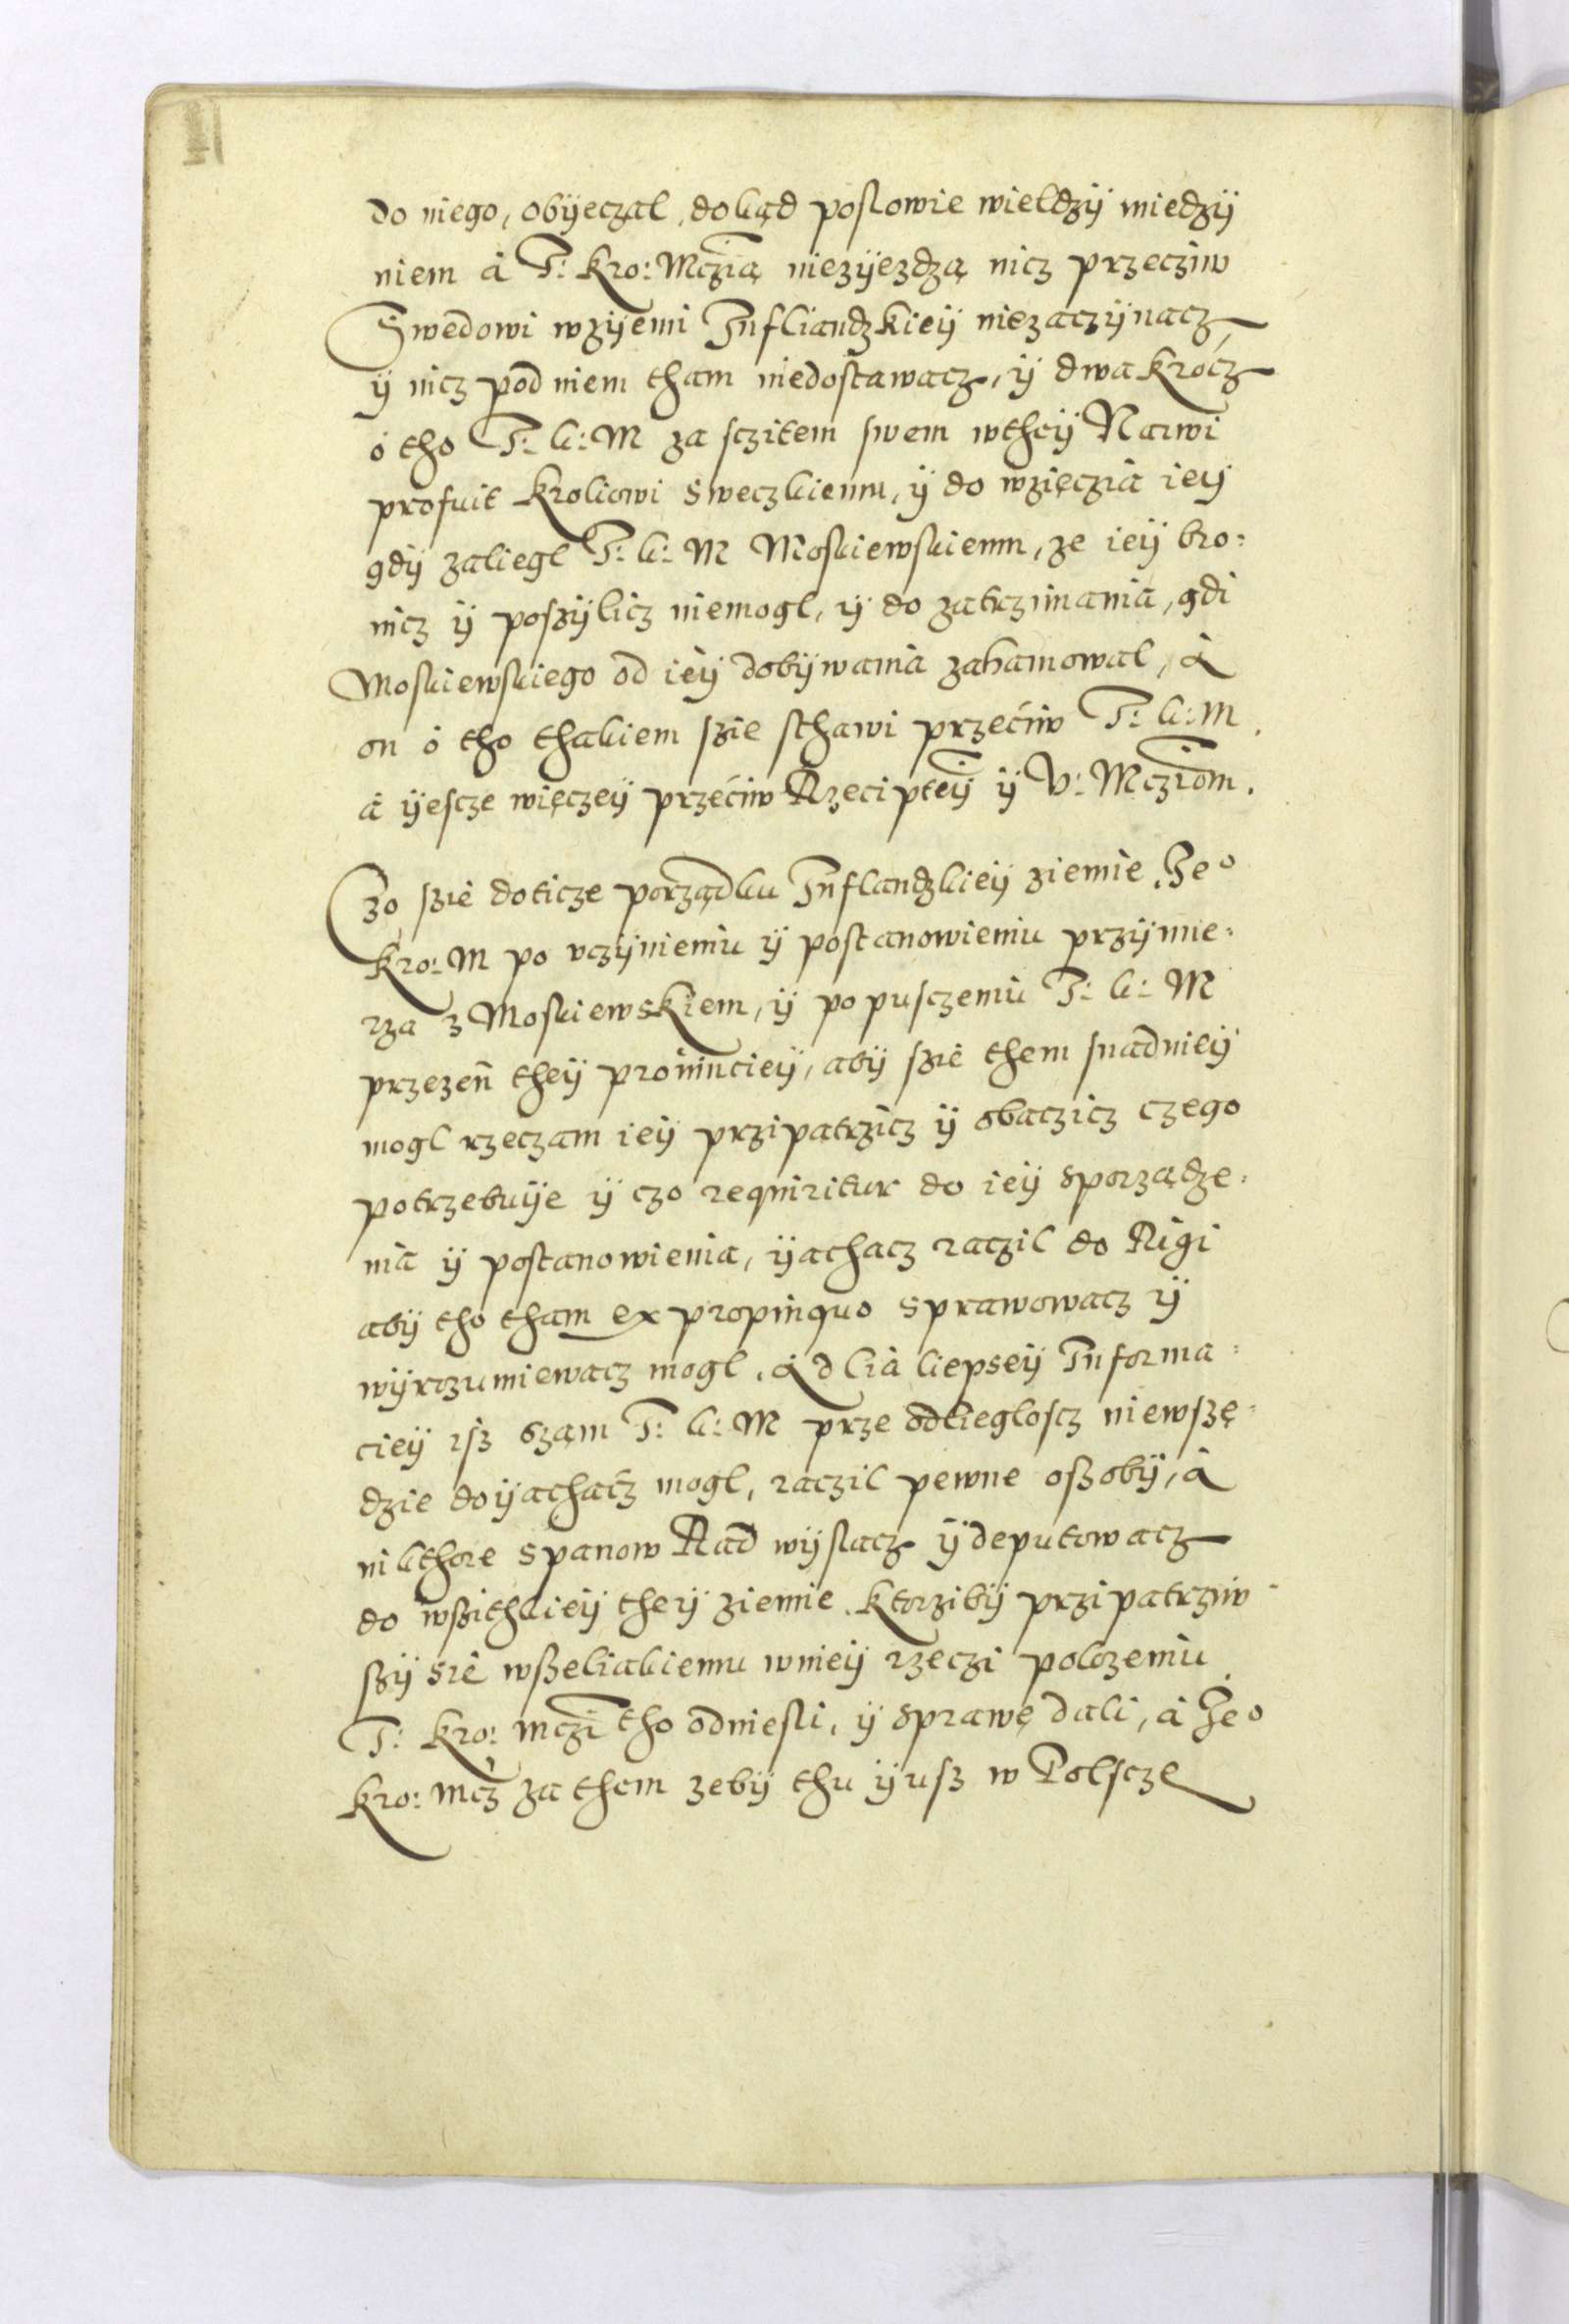 do niego, obÿeczal, dokąd poslowie wieldzÿ miedzÿ
niem á J: Kro: Mczią niezÿezdzą nicz przecziw
Swedowi wzÿemi Infliandzkieÿ niezaczÿnacz,
ÿ nicz pod niem tham niedostawacz, ÿ dwakrocz
ó tho J: k: M za sczitem swem wtheÿ Narwi
profuit Kroliowi Sweczkiemu, ÿ do wzięczia ieÿ
gdÿ zaliegl J: k: M Moskiewskiemu, ze ieÿ bro:
nicz ÿ poszÿlicz niemogl, ÿ do zatrzimania, gdi
Moskiewskiego od ieÿ dobÿwania zahamowal, á
on ó tho thakiem szie sthawi przećiw J: k: M.
á ÿescze więczeÿ przećiw Rzecipteÿ ÿ V: Mcziom.
Czo szie doticze porządku Inflandzkieÿ ziemie, Jeo
Kro: M po vczÿnieniu ÿ postanowieniu przÿmie:
rza z Moskiewskiem, ÿ popusczeniu J: k: M
przezeń theÿ prowinciey, abÿ szie them snadnieÿ
mogl rzeczam ieÿ przipatrzicz ÿ obaczicz czego
potrzebuÿe ÿ czo requiritur do ieÿ sporządze:
nia ÿ postanowienia, ÿachacz raczil do Rigi
abÿ tho tham ex propinquo sprawowacz ÿ
wÿrozumiewacz mogl. á dlia liepseÿ Informa:
cieÿ isz szam J: k: M prze odliegloscz niewszę:
dzie doÿachacz mogl, raczil pewne oszobÿ, á
nikthore spanow Rad wÿslacz ÿ deputowacz
do wszithkieÿ theÿ ziemie. ktorzibÿ przipatrziw:
szÿ sie wszeliakiemu wnieÿ rzeczi polozeniu
J: Kro: mczi tho odniesli, ÿ sprawę dali, á Jeo
Kro: mcz za them zebÿ thu ÿusz w Polscze